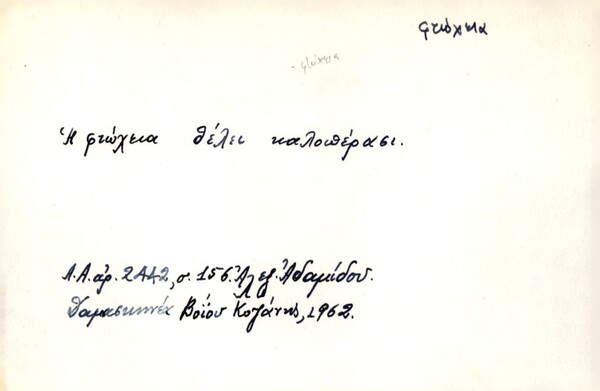 φτώχεια
φτώχεια
Ἡ φτώχεια θέλει καλοπέρασι.
Λ.Α. ἀρ. 2442, σ. 156. Ἀλεξ. Ἀδαμίδου.
Δαμασκηνέα Βοΐου Κοζάνης, 1962.